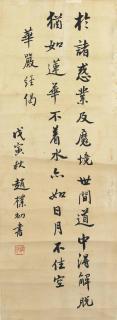 於諸惑業及魔境世間道中得解脱
猶如蓮華不着水亦如日月不住空
華嚴经偈
戊寅秋趙樸初書